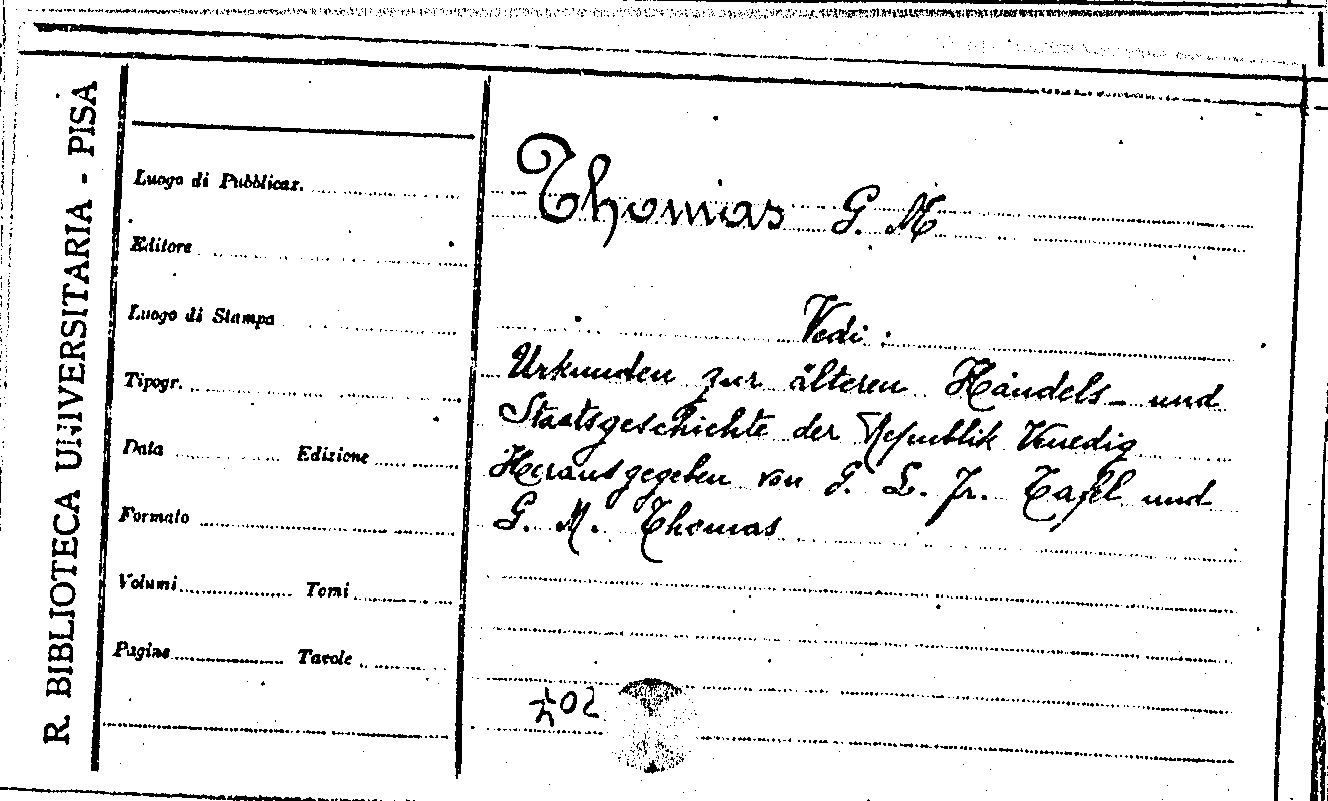 R. BIBLIOTECA UNIVERSITARIA - PISA
Luogo di Pubblicaz.
Editore
Luogo di Stampa
Tipogr.
Data Edizione
Formato
Volumi Tomi
Pagine Tavole
Thomas G. M
Vedi :
Urkunden zur älteren Handels- und
Staatsgeschichte der Republik Venedig
Herausgegeben von G. L. Fr. Tafel und
G. M. Thomas